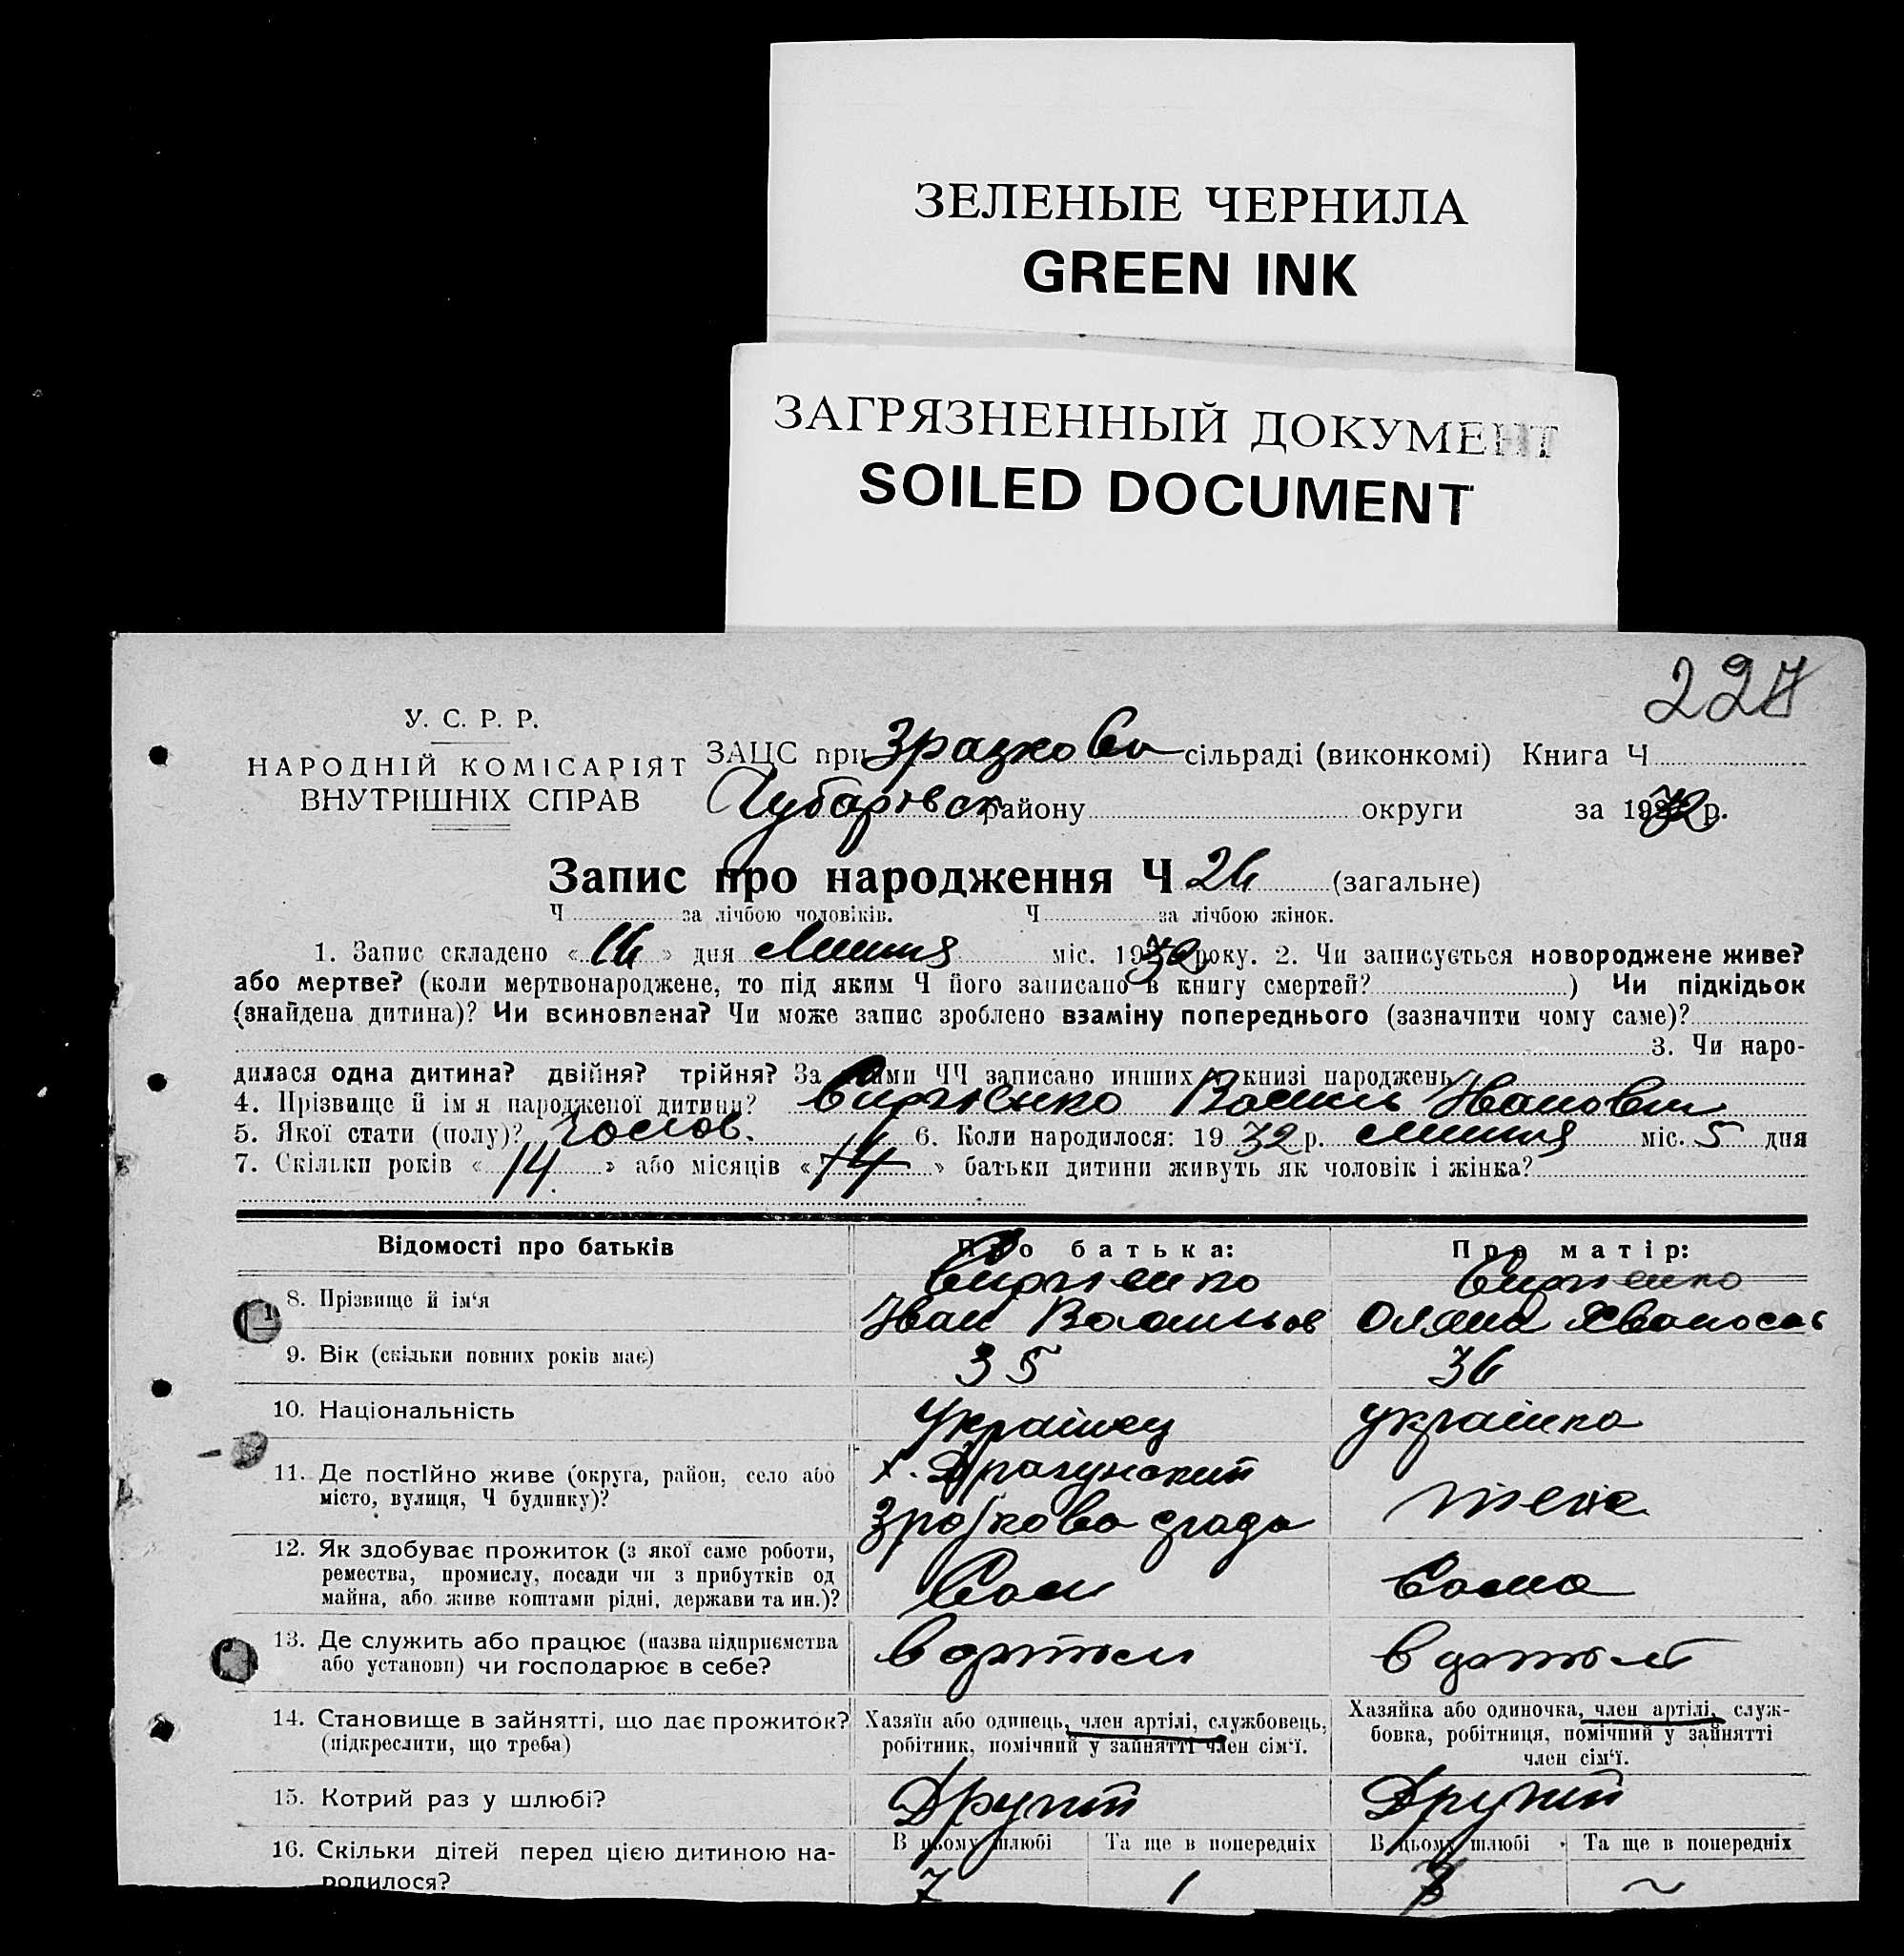 ЗЕЛЕНЫЕ ЧЕРНИЛА
GREEN INK
ЗАГРЯЗНЕННЫЙ ДОКУМЕНТ
SOILED DOCUMENT
227
У. С. Р. Р.
НАРОДНІЙ КОМІСАРІЯТ
ВНУТРІШНІХ СПРАВ
ЗАЦС при Зразково сільраді (виконкомі) Книга Ч
Чубарівськ району округи за 1932 р.
Запис про народження Ч 26 (загальне)
Ч за лічбою чоловіків. Ч за лічбою жінок.
1. Запис складено « 16 » дня Липня міс. 1932 року. 2. Чи записується новороджене живе?
або мертве? (коли мертвонароджене, то під яким Ч його записано в книгу смертей? ) Чи підкідьок
(знайдена дитина)? Чи всиновлена? Чи може запис зроблено взаміну попереднього (зазначити чому саме)?
3. Чи наро-
дилася одна дитина? двійня? трійня? За якими ЧЧ записано инших у книзі народжень
4. Прізвище й ім я народженої дитини? Василь Іванович
5. Якої стати (полу)? Чолов. 6. Коли народилося: 19 32 р. липня міс. 5 дня
7. Скільки років « 14 » або місяців « » батьки дитини живуть як чоловік і жінка?
Відомості про батьків
Про батька:
Про матір:
8. Прізвище й ім'я
Іван Васильов
Оляна
9. Вік (скільки повних років має)
35
36
10. Національність
Українец
українка
11. Де постійно живе (округа, район, село або
місто, вулиця, Ч будинку)?
х. Драгунский
Зразкова
теж
12. Як здобуває прожиток (з якої саме роботи,
ремества, промислу, посади чи з прибутків од
майна, або живе коштами рідні, держави та ин.)?
Сам
Сама
13. Де служить або працює (назва підприємства
або установи) чи господарює в себе?
в артіли
в артілі
14. Становище в зайнятті, що дає прожиток?
(підкреслити, що треба)
Хазяїн або одинець, член артілі, службовець,
робітник, помічний у зайнятті член сім'ї.
Хазяйка або одиночка, член артілі, служ-
бовка, робітниця, помічний у зайнятті
член сім'ї.
15. Котрий раз у шлюбі?
Другий
Другий
16. Скільки дітей перед цією дитиною на-
родилося?
В цьому шлюбі
Та ще в попередніх
В цьому шлюбі
Та ще в попередніх
7
1